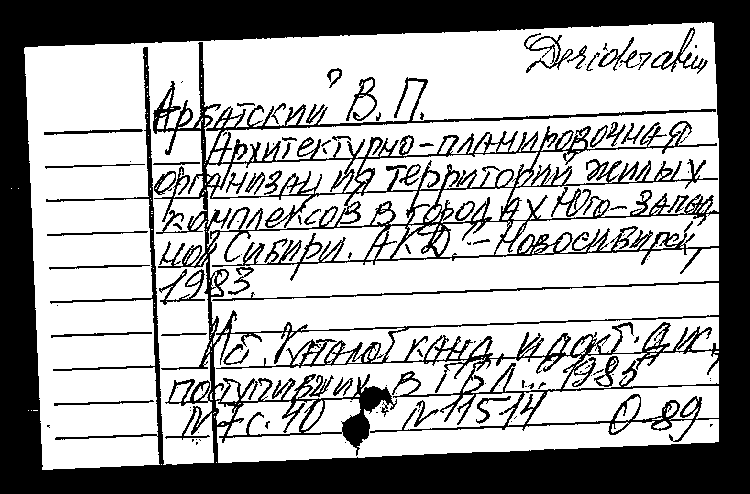 Desiderata
Арбатский В.П.
Архитектурно-планировочная
организация территорий жилых
комплексов в городах Юго-Запад-
ной Сибири. АКД. - Новосибирск,
1983.
Ист. Каталог канд. и докт. дис.,
поступивших в ГБЛ... 1985
N7 с. 40 N 11514 0-89